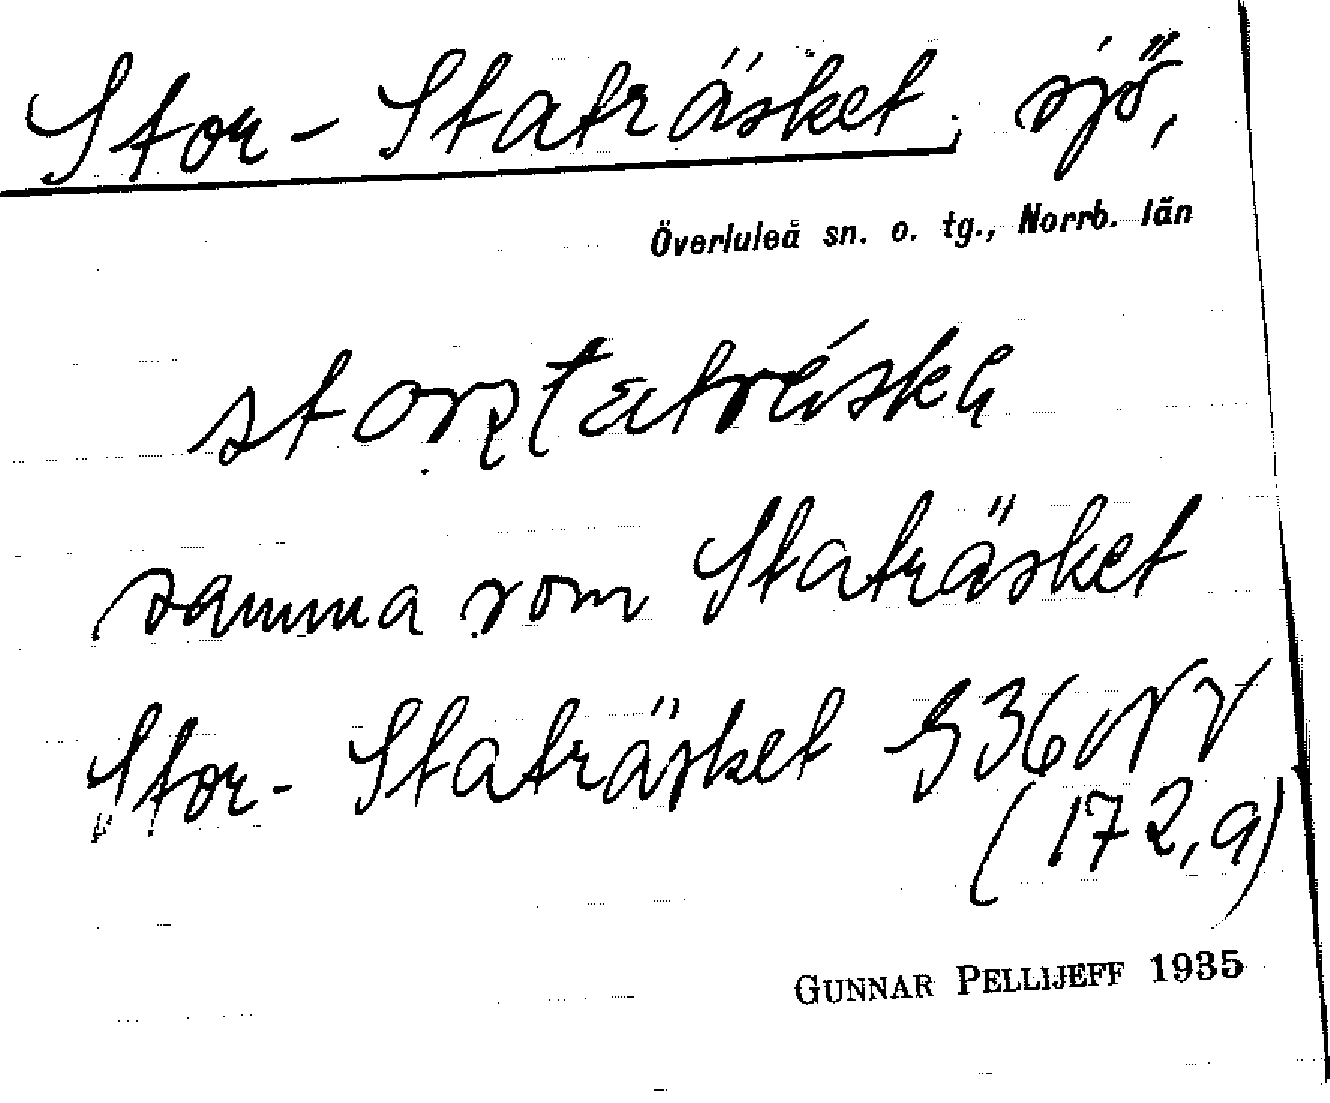 Stor-Staträsket, sjö,
Överluleå sn. o. tg., Norrb. län
samma som Staträsket
Stor-Staträsket S36NV
(172,9)
GUNNAR PELLIJEFF 1935